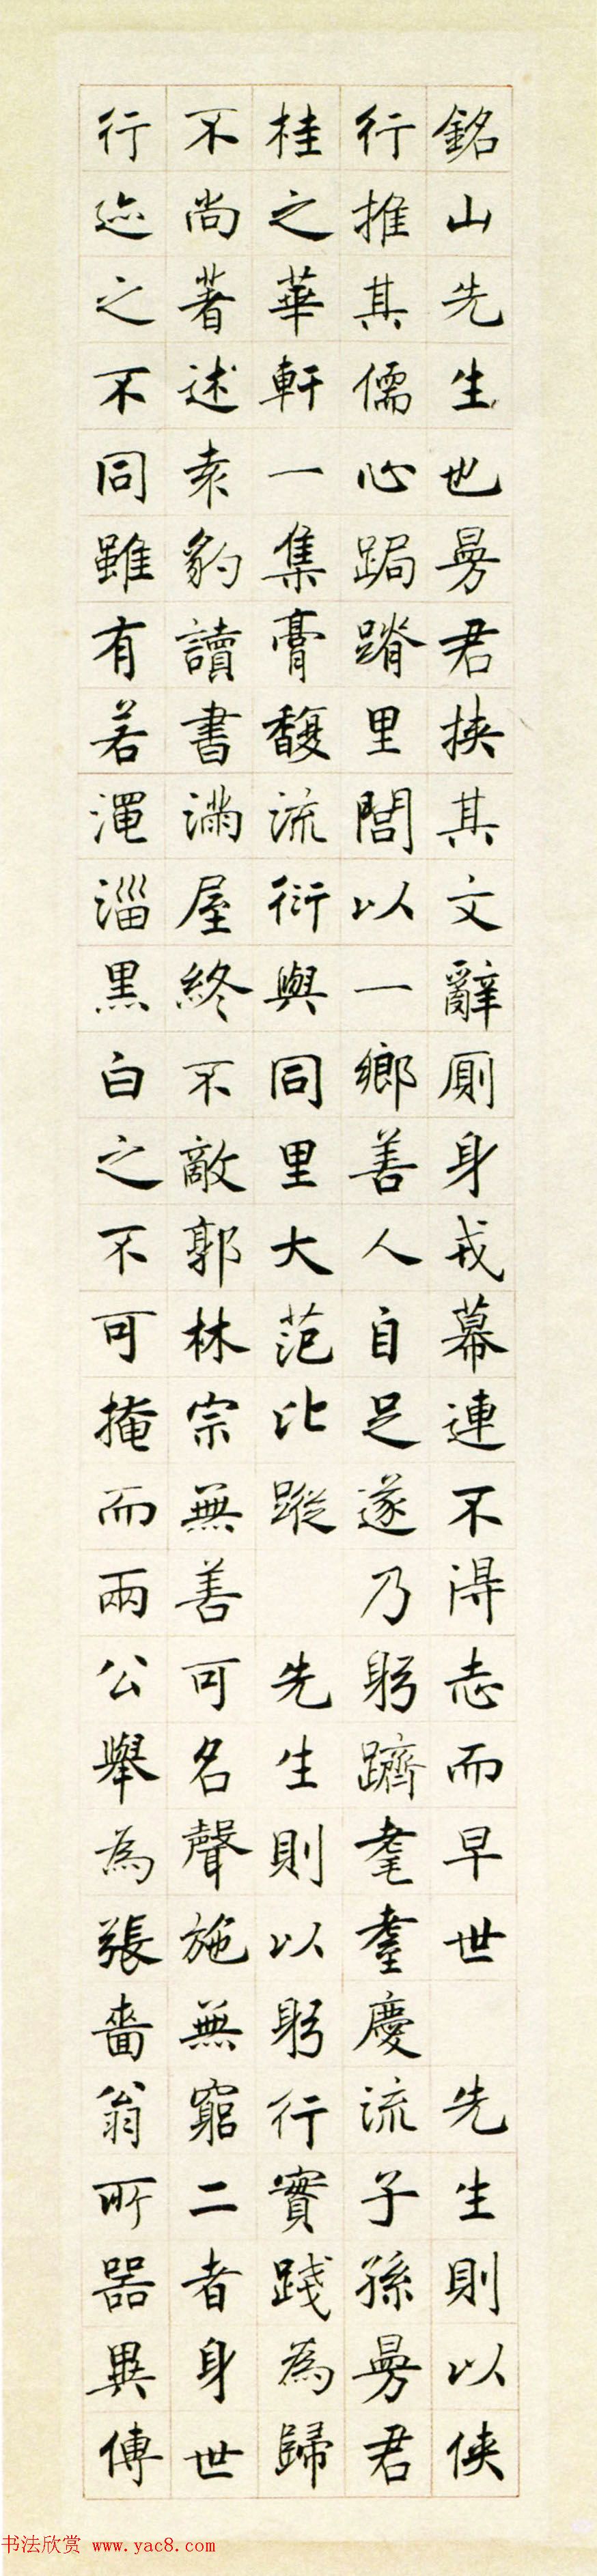 銘山先生也曼君挾其文辭厠身戎幕連不得志而早世　先生則以俠
行推其儒心跼蹐里閭以一鄉善人自足遂乃躬躋耄耋慶流子孫曼君
桂之華軒一集膏馥流衍與同里大范比蹤　先生則以躬行實踐為歸
不尚著述袁豹讀書滿屋終不敵郭林宗無善可名聲施無窮二者身世
行迹之不同雖有若澠淄黑白之不可掩而兩公舉為張嗇翁所器異傳
书法欣赏 www.yac8.com